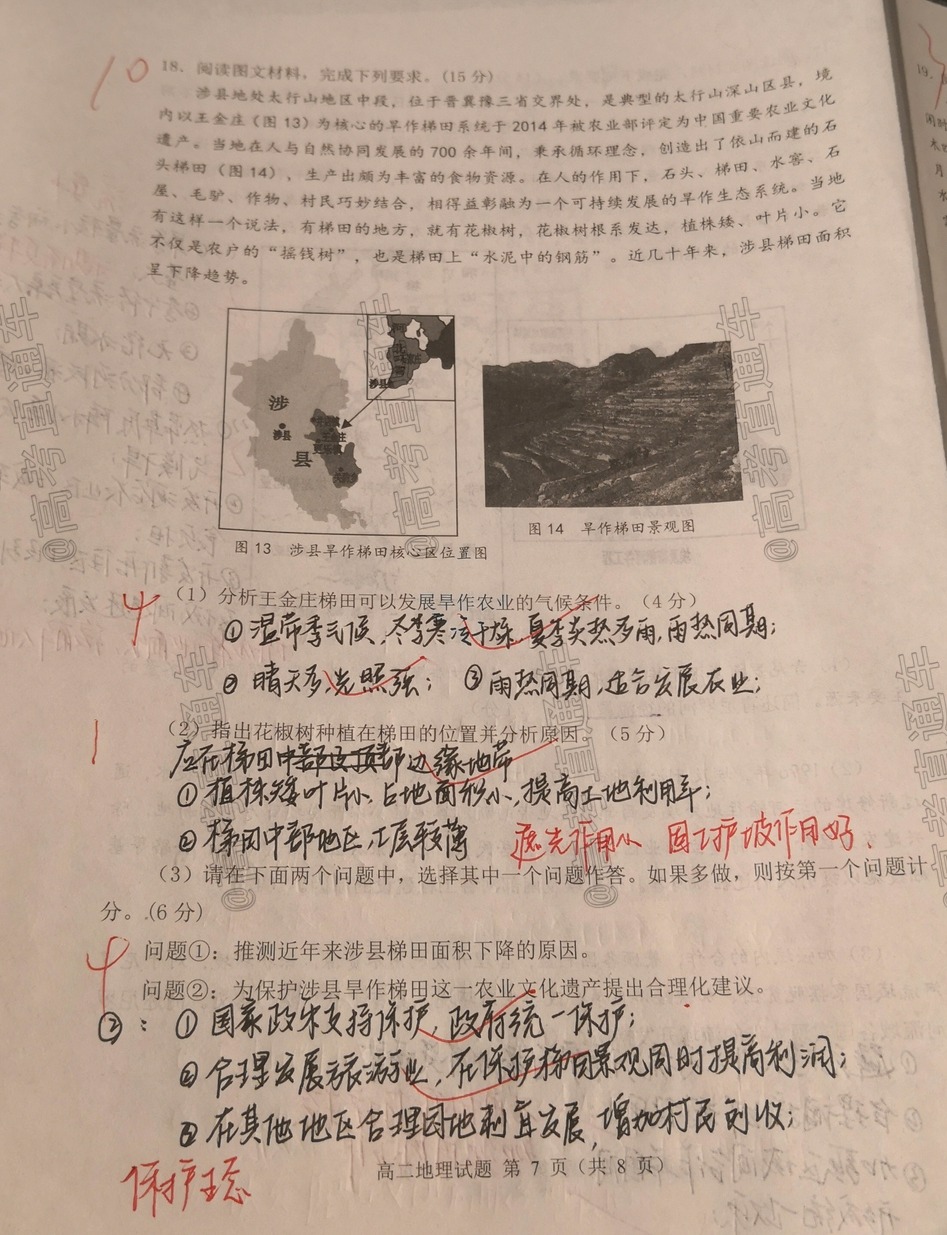 10
18. 阅读图文材料，完成下列要求。(15分)
涉县地处太行山地区中段，位于晋冀豫三省交界处，是典型的太行山深山区县，境
内以王金庄（图13）为核心的旱作梯田系统于2014年被农业部评定为中国重要农业文化
遗产。当地在人与自然协同发展的700余年间，秉承循环理念，创造出了依山而建的石
头梯田（图14），生产出颇为丰富的食物资源。在人的作用下，石头、梯田、水窖、石
屋、毛驴、作物、村民巧妙结合，相得益彰融为一个可持续发展的旱作生态系统。当地
有这样一个说法，有梯田的地方，就有花椒树，花椒树根系发达，植株矮、叶片小。它
不仅是农户的“摇钱树”，也是梯田上“水泥中的钢筋”。近几十年来，涉县梯田面积
呈下降趋势。
涉县
涉
涉县
王金庄
县
图13 涉县旱作梯田核心区位置图
图14 旱作梯田景观图
4
（1）分析王金庄梯田可以发展旱作农业的气候条件。（4分）
①温带季气候、冬季寒冷干燥、夏季炎热多雨，雨热同期；
②晴天多，光照强；③雨热同期，适合发展农业；
1
（2）指出花椒树种植在梯田的位置并分析原因。（5分）
应在梯田中部边缘地带
①植株矮叶片小，占地面积小，提高土地利用率；
②梯田中部地区，土层较薄
遮光作用小 固土护坡作用好.
（3）请在下面两个问题中，选择其中一个问题作答。如果多做，则按第一个问题计
分。(6分)
4
问题①：推测近年来涉县梯田面积下降的原因。
问题②：为保护涉县旱作梯田这一农业文化遗产提出合理化建议。
②：①国家政策支持保护，政府统一保护；
②合理发展旅游业，在保护梯田景观同时提高利润；
③在其他地区合理因地制宜发展，增加村民创收；
保护生态
高二地理试题 第7页（共8页）
19.
@高考直通车
@高考直通车
@高考直通车
@高考直通车
@高考直通车
@高考直通车